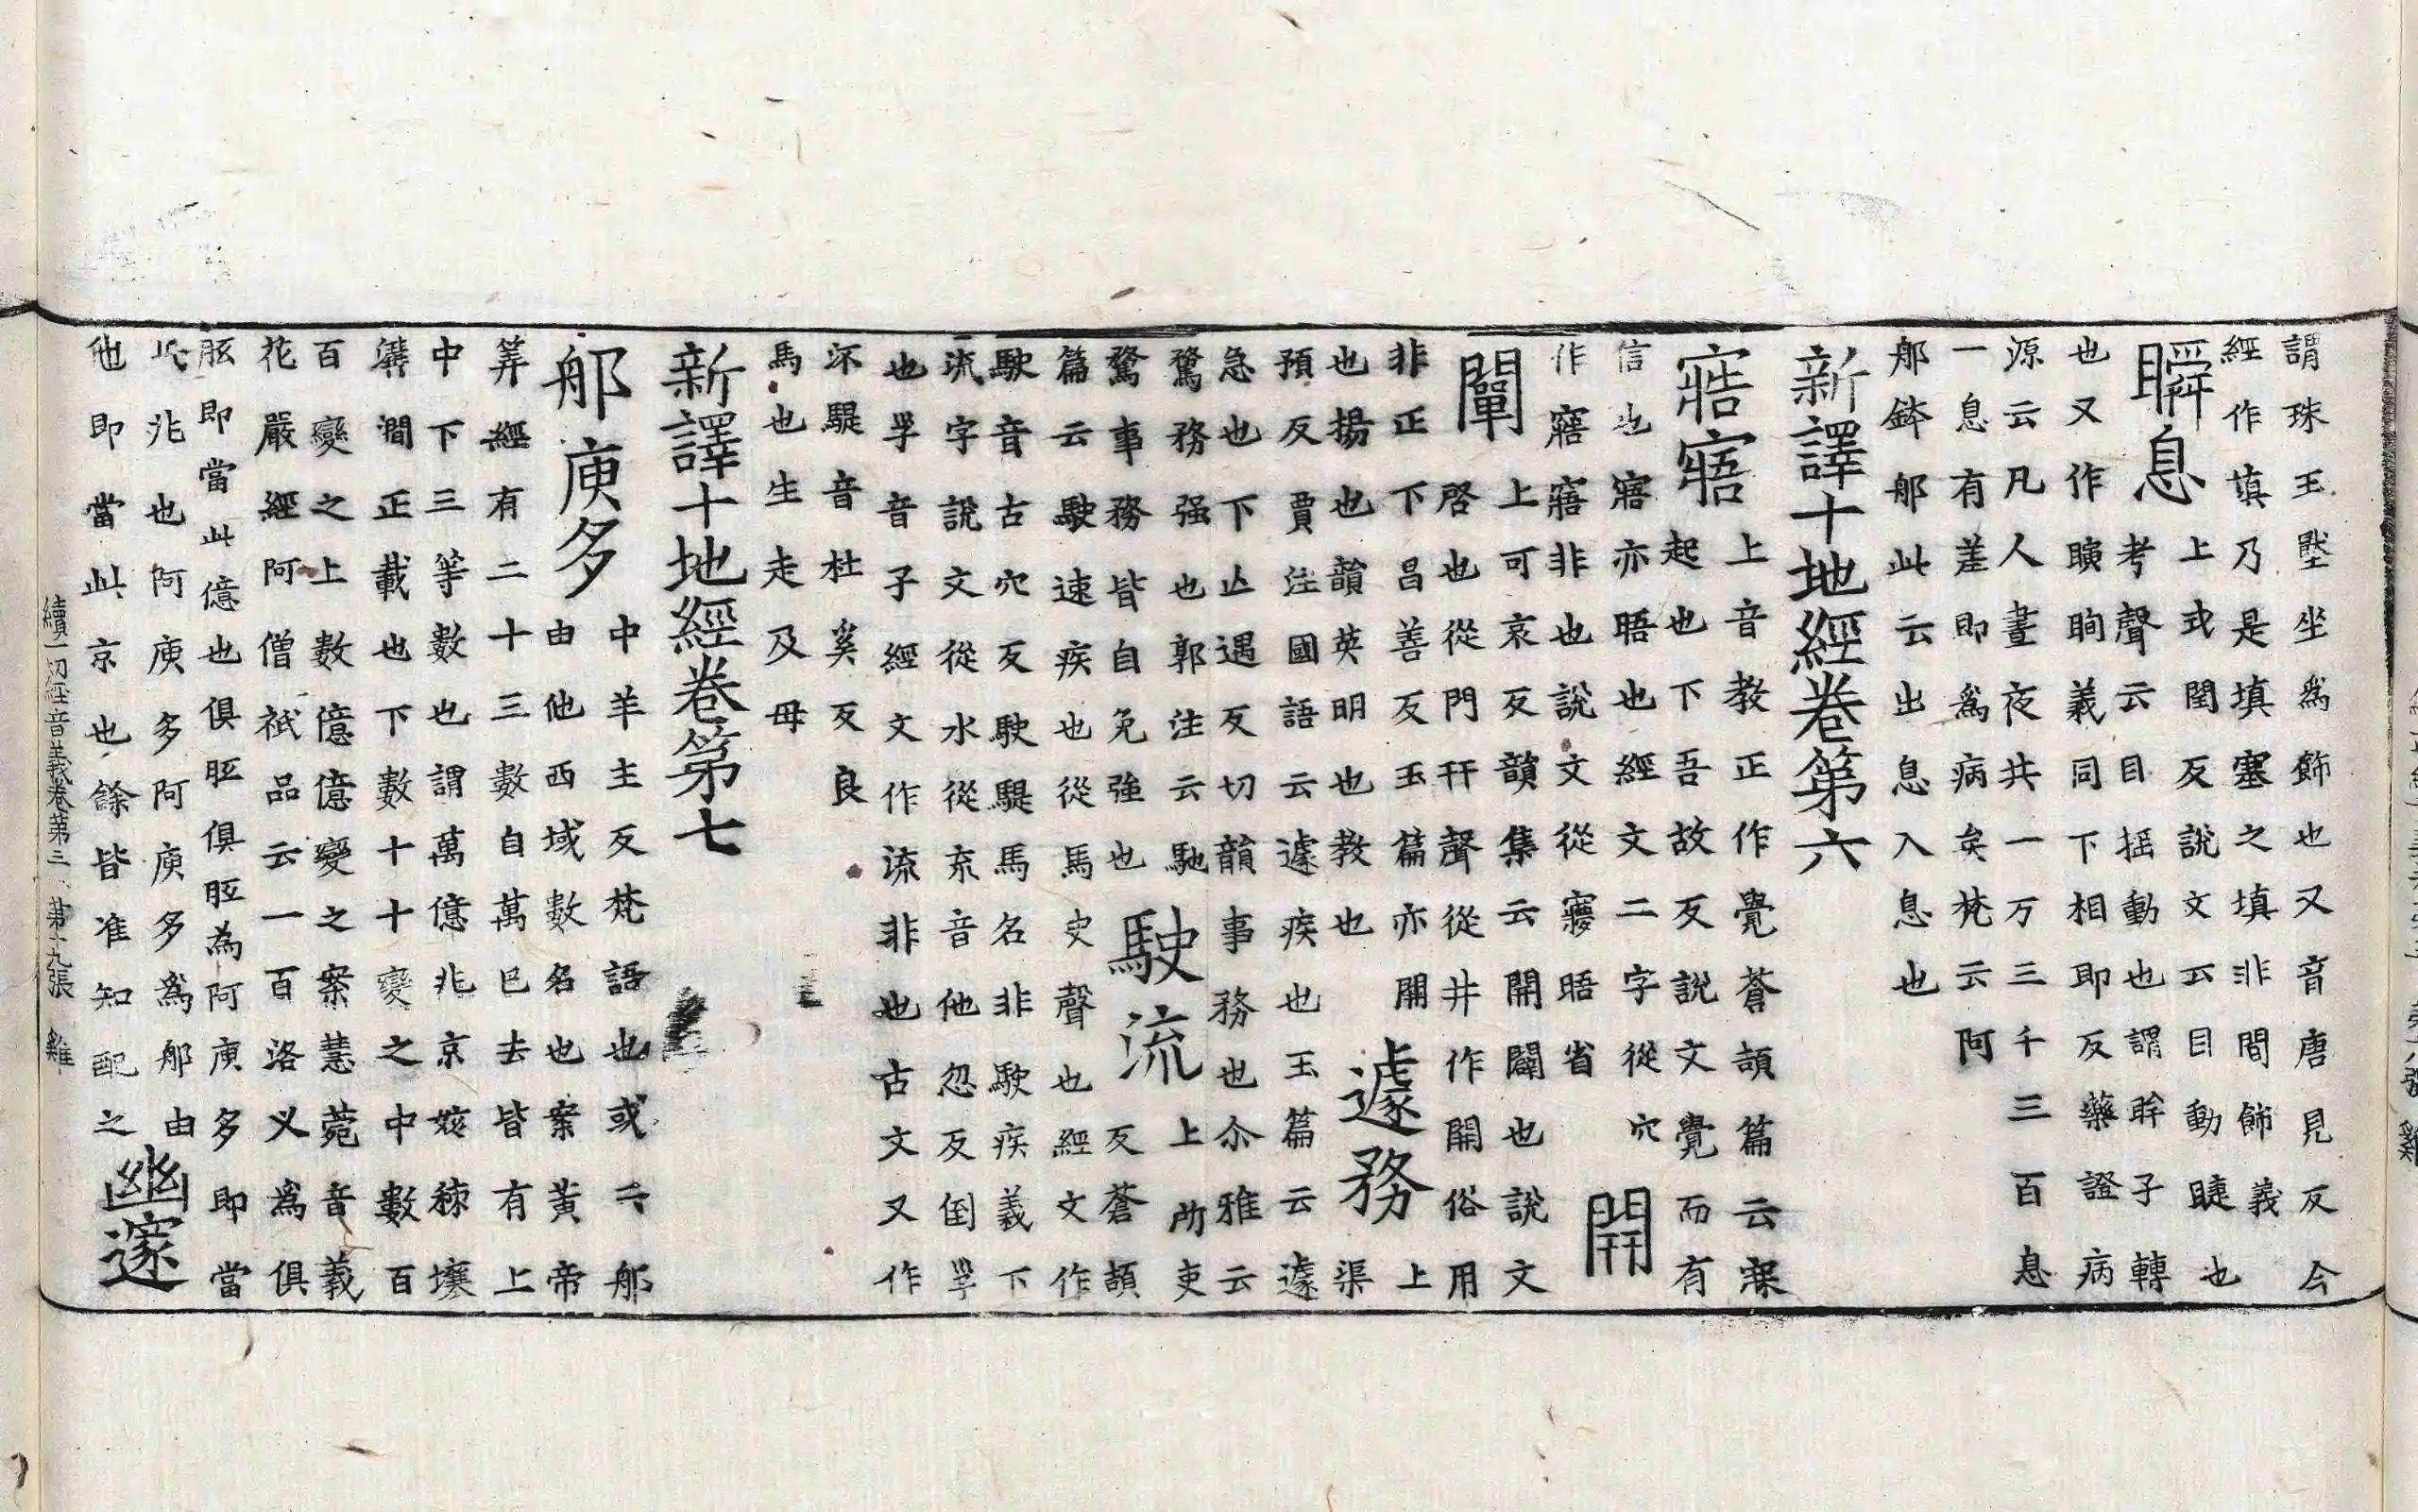 謂珠玉墍坐爲飾也又音唐見反今
經作塡乃是填塞之填非間飾義也
瞬息上或閏反說文云目動睫也
考聲云目揺動也謂眸子轉
也又作瞚眴義同下相即反藥證病
源云凡人晝夜共一万三千三百息
一息有差即爲病矣梵云阿
那鉢那此云出息入息也
新譯十地經卷第六
寤寤上音教正作覺蒼頡篇云寐
起也下吾故反說文覺而有
信也寤亦晤也經文二字從穴
作窹窹非也說文從㝱晤省 開
闡上可哀反韻集云開闢也說文
啓也從門幵聲從井作開俗用
非正下昌善反玉篇亦開
也揚也韻英明也教也 遽務上渠
預反賈注國語云遽疾也玉篇云遽
急也下亡遇反切韻事務也尒雅云
騖務强也郭注云馳
騖事務皆自免強也 駛流上所吏反蒼頡
篇云駛速疾也從馬史聲也經文作
駃音古穴反駃騠馬名非駛疾義下
流字說文從水從㐬音他忽反倒𡿮
也𡿮音子經文作流非也古文又作
㐬騠音杜奚反良
馬也生走及母
新譯十地經卷第七
那庾多中羊主反梵語也或云那
由他西域數名也案黃帝
筭經有二十三數自萬已去皆有上
中下三等數也謂萬億兆京姟秭壤
溝澗正載也下數十十變之中數百
百變之上數億億變之案慧菀音義
花嚴經阿僧祇品云一百洛义爲俱
胝即當此億也俱胝俱胝為阿庾多即當
此兆也阿庾多阿庾多爲那由
他即當此京也餘皆准知配之 幽邃
續一切經音義卷第三 第十九張 雞